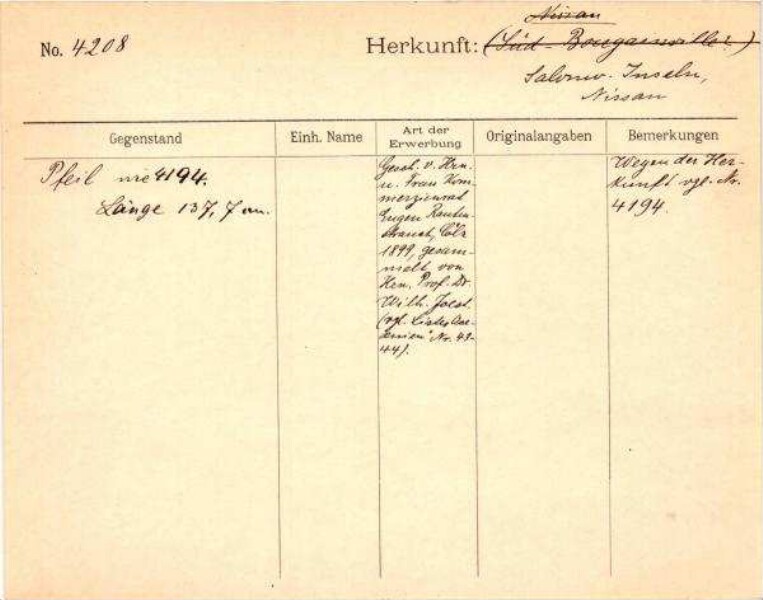 Nissan
No. 4208 Herkunft: (Süd-Bougainville.)
Salomo-Inseln,
Nissan
Gegenstand Einh. Name Art der Erwerbung Originalangaben Bemerkungen
Pfeil wie 4194.
Länge 137,7 cm.
Gesch. v. Hrn.
u. Frau Kom-
merzienrat
Eugen Rauten-
strauch, Cöln
1899, gesam-
melt von
Hrn. Prof. Dr.
Wilh. Joest.
(vgl. Liste „Oze-
anien" Nr. 43-
44).
Wegen der Her-
kunft vgl. Nr.
4194.